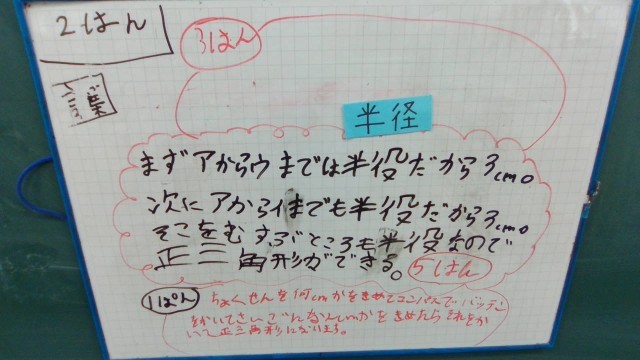 2はん
3はん
言葉
半径
まずアからウまでは半役だから3cm。
次にアからイまでも半役だから3cm。
そこをむすぶところも半役なので
正三角形ができる。
5はん
1ぱん
ちょくせんを何cmかをきめてコンパスでバッテン
をかいてさいごに
かをきめたらそれをか
いて正三角形になります。